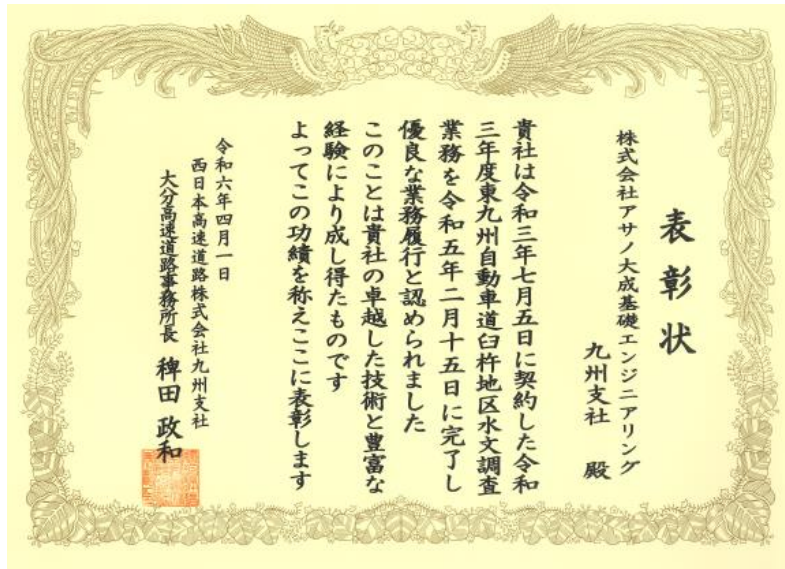 表彰状
株式会社アサノ大成基礎エンジニアリング
九州支社 殿
貴社は令和三年七月五日に契約した令和
三年度東九州自動車道臼杵地区水文調査
業務を令和五年二月十五日に完了し
優良な業務履行と認められました
このことは貴社の卓越した技術と豊富な
経験により成し得たものです
よってこの功績を称えここに表彰します
令和六年四月一日
西日本高速道路株式会社九州支社
大分高速道路事務所長 稗田 政和